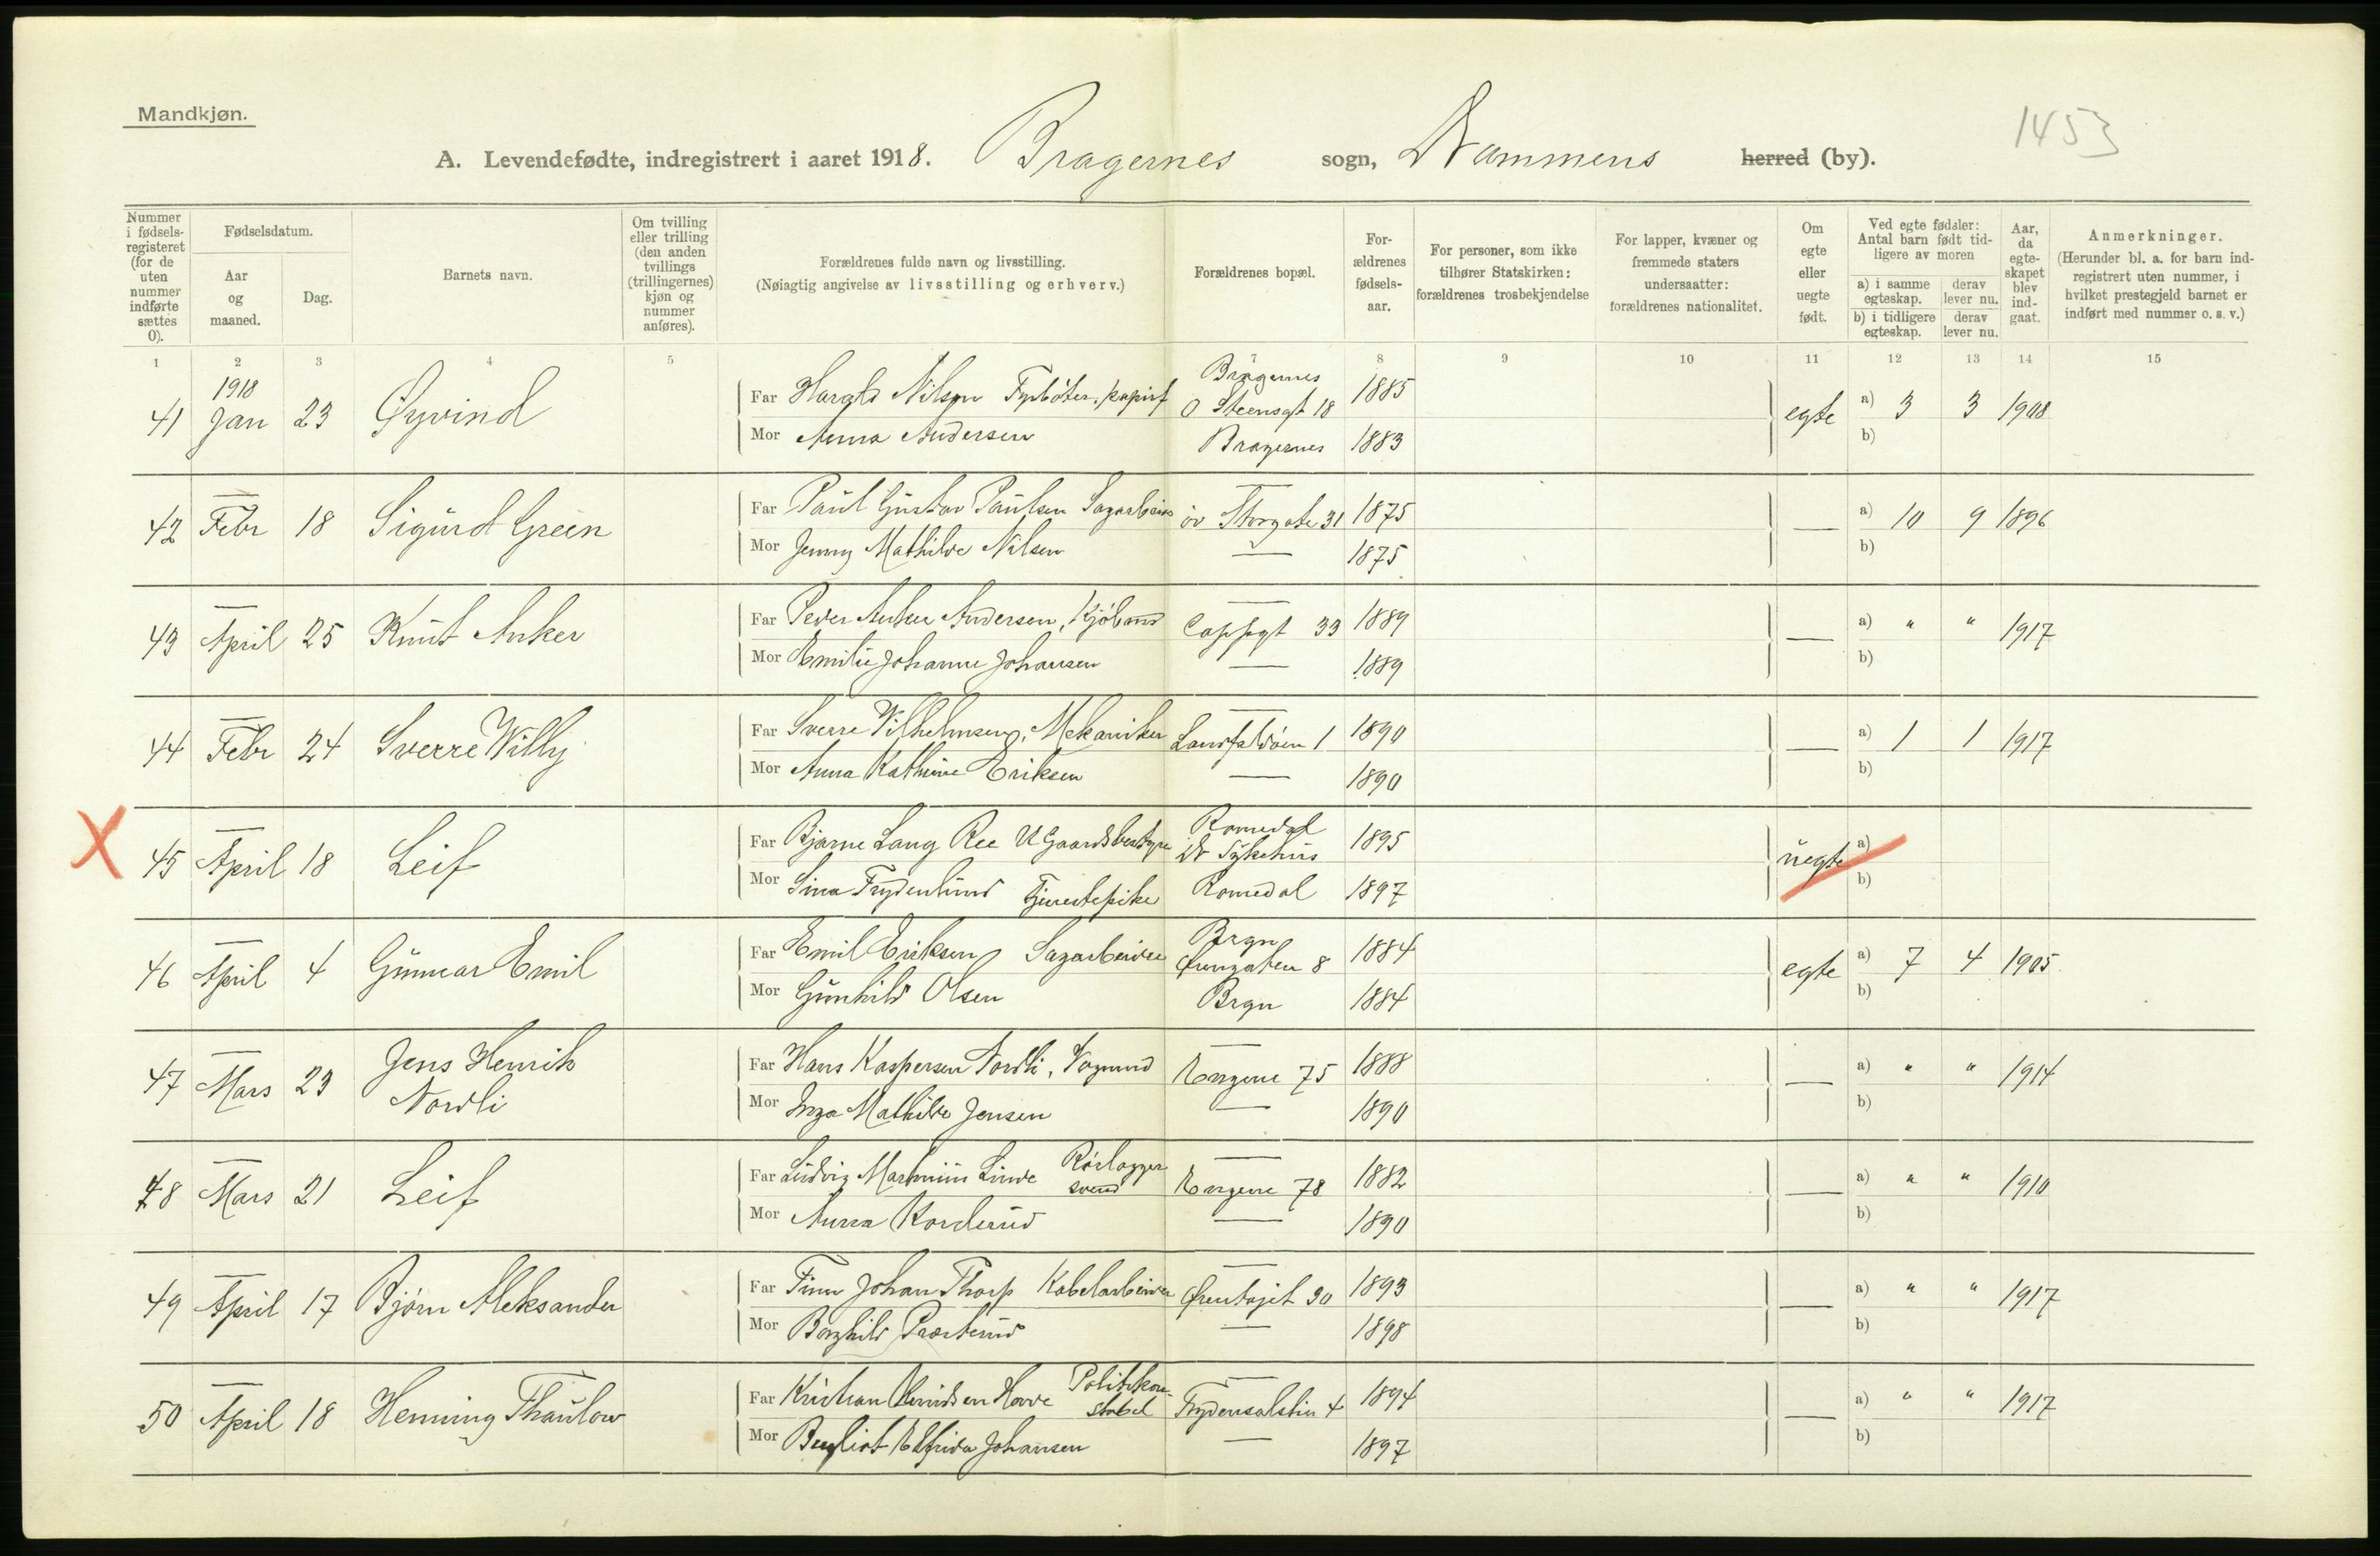 Mandkjøn.
1453
A. Levendefødte, indregistrert i aaret 1918. Bragernes sogn, Drammens herred (by).
Nummer i fødsels-registeret (for de uten nummer indførte sættes 0).
Fødselsdatum.
Aar og maaned.
Dag.
Barnets navn.
Om tvilling eller trilling (den anden tvillings (trillingernes) kjøn og nummer anføres).
Forældrenes fulde navn og livsstilling.
(Nøiagtig angivelse av livsstilling og erhverv.)
Forældrenes bopæl.
For-ældrenes fødsels-aar.
For personer, som ikke tilhører Statskirken: forældrenes trosbekjendelse
For lapper, kvæner og fremmede staters undersaatter: forældrenes nationalitet.
Om egte eller uegte født.
Ved egte fødsler: Antal barn født tid-ligere av moren
a) i samme egteskap. derav lever nu.
b) i tidligere egteskap. derav lever nu.
Aar, da egte-skapet blev ind-gaat.
Anmerkninger.
(Herunder bl. a. for barn ind-registrert uten nummer, i hvilket prestegjeld barnet er indført med nummer o. s. v.)
1 2 3 4 5 7 8 9 10 11 12 13 14 15
1918 Bragernes
41 Jan 23 Øyvind Far Harald Nilsen Fyrbøter, papirf O Steensgt 18 1885 egte a) 3 3 1908
Mor Anna Andersen Bragernes 1883 b)
42 Febr 18 Sigurd Green Far Paul Gustav Paulsen Sagarbeider øv Storgate 31 1875 — a) 10 9 1896
Mor Jenny Mathilde Nilsen — 1875 b)
43 April 25 Knut Anker Far Peder Anker Andersen, Kjøbmd Cappgt 33 1889 — a) " " 1917
Mor Emilie Johanne Johansen — 1889 b)
44 Febr 24 Sverre Willy Far Sverre Vilhelmsen, Mekaniker Landfaldøen 1 1890 — a) 1 1 1917
Mor Anna Kathrine Eriksen — 1890 b)
X 45 April 18 Leif Far Bjarne Lang Ree U Gaardsbestyre Romedal 1895 uegte a)
Dr Sykehus
Mor Sina Frydenlund Tjenestepike Romedal 1897 b)
46 April 4 Gunnar Emil Far Emil Eriksen Sagarbeider Brgn 8 1884 egte a) 7 4 1905
Mor Gunhild Olsen Brgn 1884 b)
47 Mars 23 Jens Henrik Nordli Far Hans Kaspersen Nordli, Vognmd Engene 75 1888 — a) " " 1914
Mor Inga Mathilde Jensen — 1890 b)
48 Mars 21 Leif Far Ludvig Martinius Linde Rørlægger svend Engene 78 1882 — a) " " 1910
Mor Anna Korderud — 1890 b)
49 April 17 Bjørn Aleksander Far Finn Johan Thorp Kabelarbeider 30 1893 — a) " " 1917
Mor Borghild Præsterud — 1898 b)
50 April 18 Henning Thaulow Far Kristian Knudsen Hovde Politikon-stabel Frydensalstin 4 1894 — a) " " 1917
Mor Bergliot Elfrida Johansen — 1897 b)